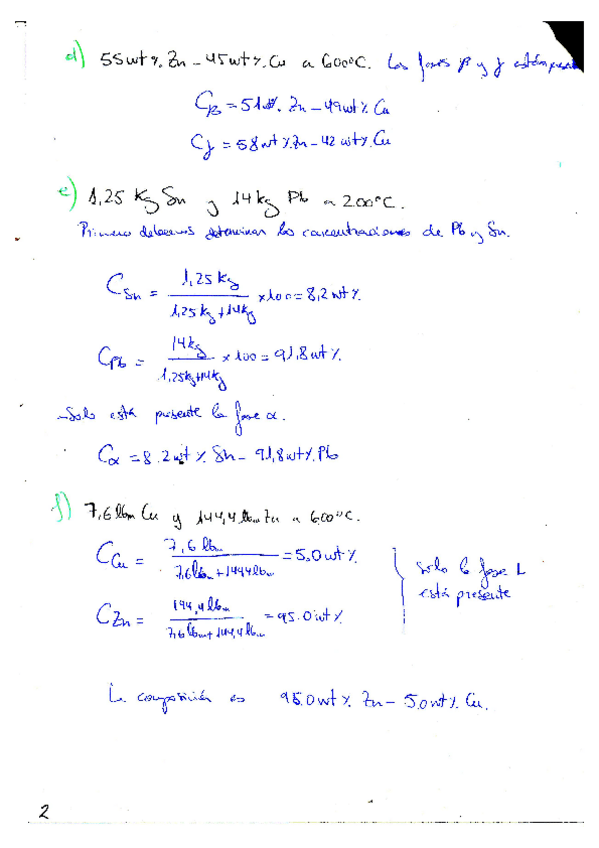 d) 55wt%. Zn - 45wt%. Cu a 600°C. Las fases β y γ están
Cβ = 51wt%. Zn - 49wt% Cu
Cγ = 58wt%Zn - 42 wt%.Cu
e) 1,25 Kg Sn y 14 kg Pb a 200°C.
Primero debemos determinar las concentraciones de Pb y Sn.
CSn = 1,25 Kg / 1,25 Kg + 14Kg × 100 = 8,2 wt%
CPb = 14 Kg / 1,25Kg+14Kg × 100 = 91,8 wt%.
-Solo está presente la fase α.
Cα = 8.2 wt% Sn - 91,8 wt% Pb
f) 7,6 lbm Cu y 144,4 lbm Zn a 600°C.
CCu = 7,6 lbm / 7,6lbm + 144,4lbm = 5.0 wt%
CZn = 144,4 lbm / 7,6 lbm + 144,4 lbm = 95.0 wt%
Solo la fase L
está presente
La composición es 95.0 wt% Zn - 5.0 wt%. Cu.
2